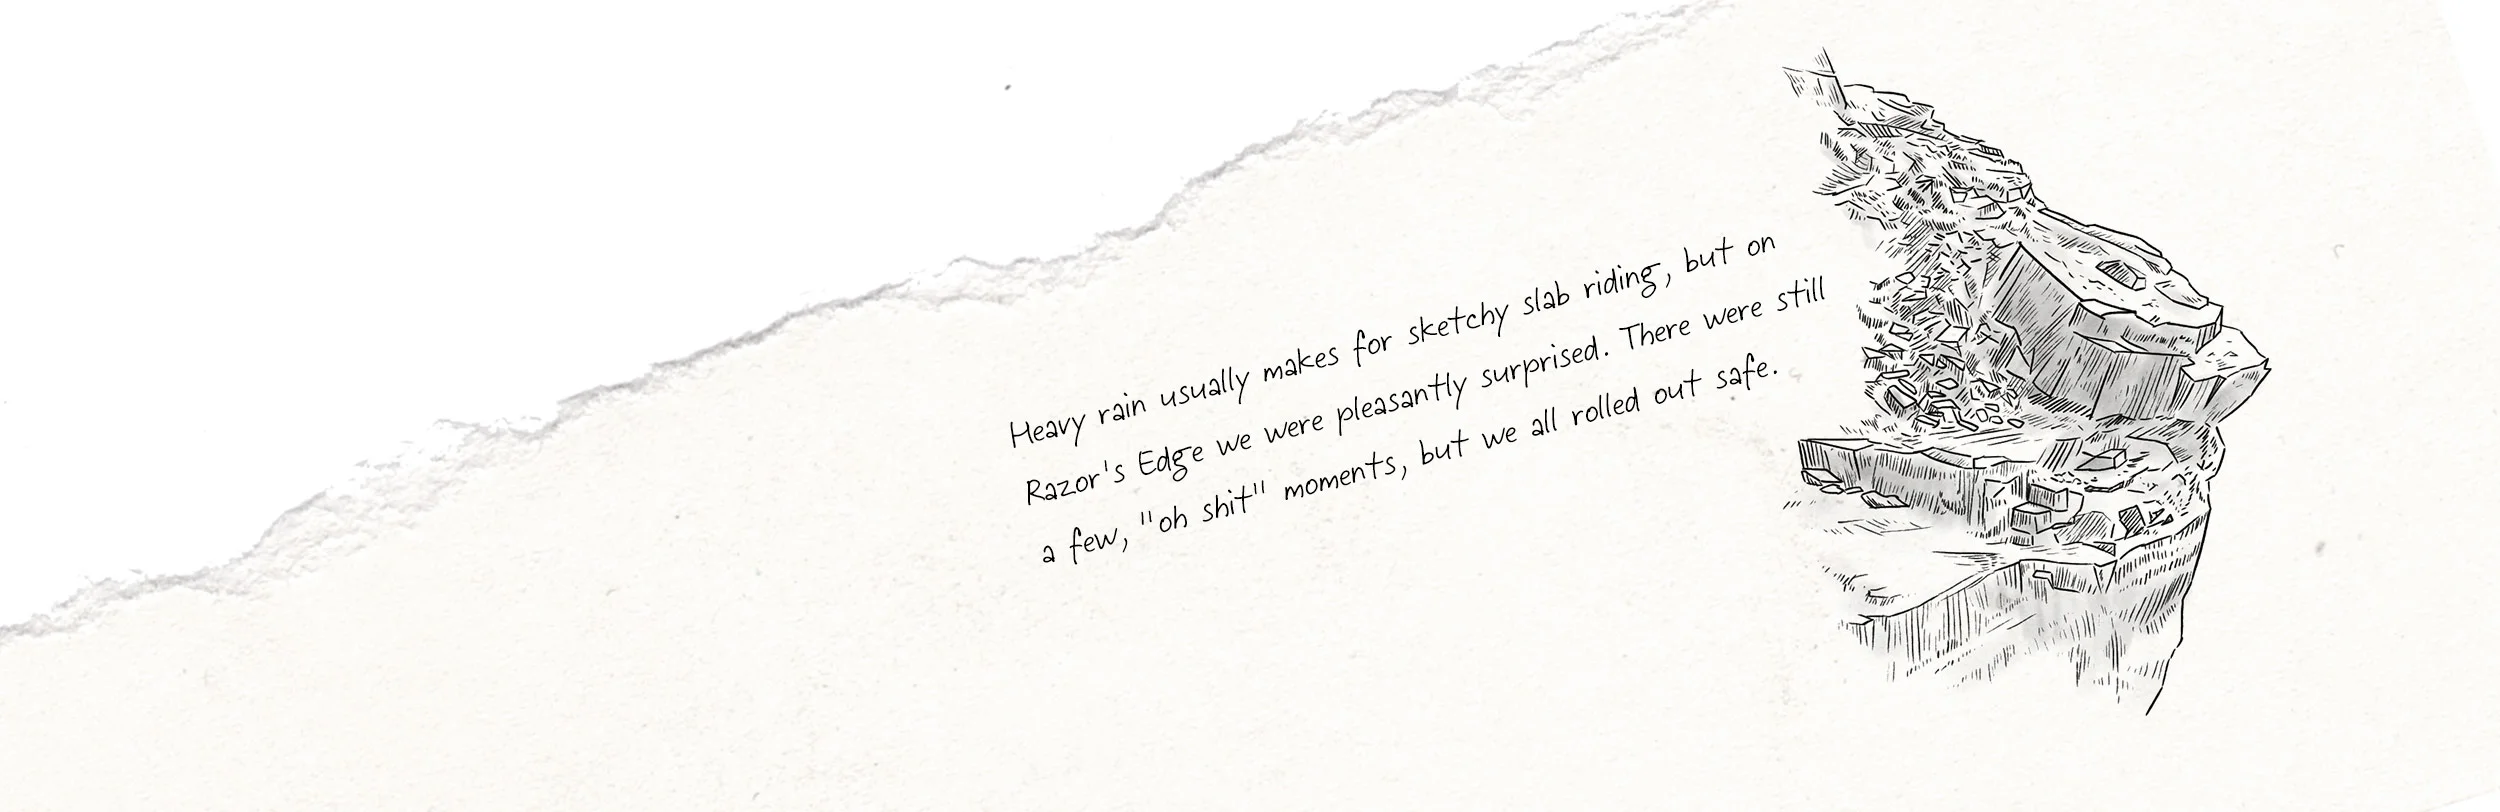 Heavy rain usually makes for sketchy slab riding, but on
Razor's Edge we were pleasantly surprised. There were still
a few, "oh shit" moments, but we all rolled out safe.